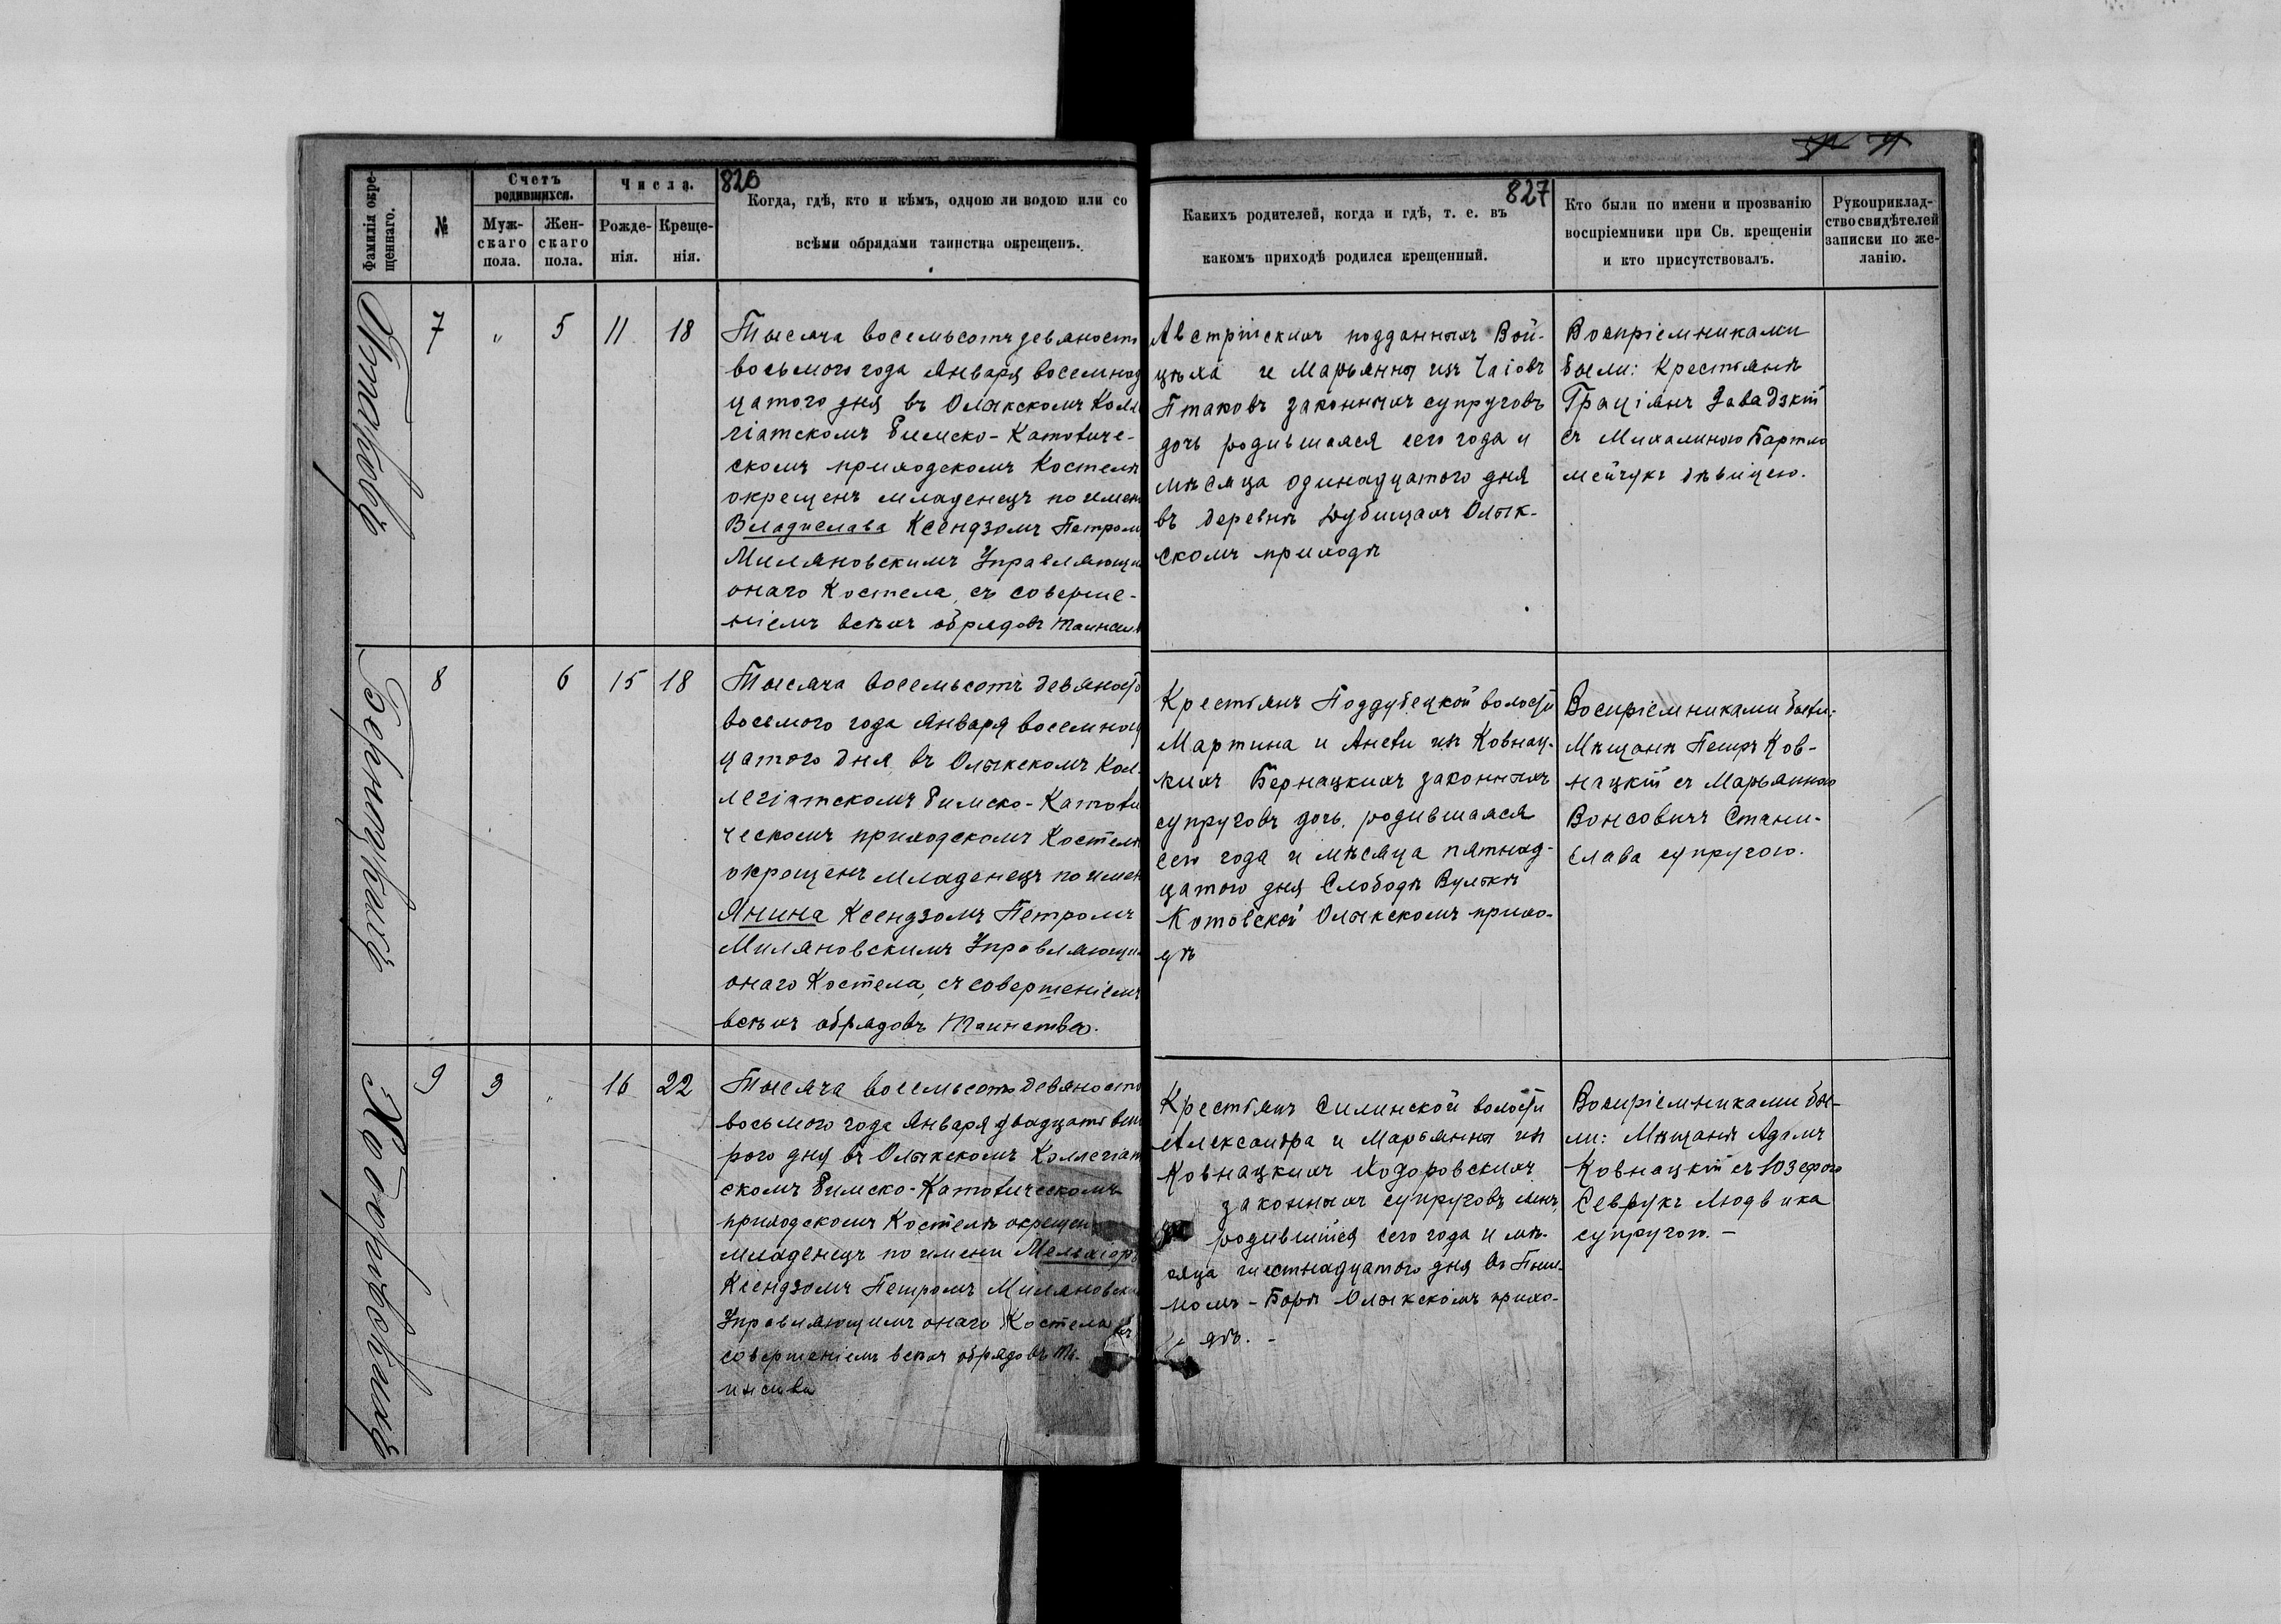 826
827
Фамилія окре-
щеннаго.
№
Счетъ
родившихся.
Муж-
скаго
пола.
Жен-
скаго
пола.
Числа.
Рожде-
нія.
Креще-
нія.
Когда, гдѣ, кто и кѣмъ, одною ли водою или со
всѣми обрядами таинства окрещенъ.
Какихъ родителей, когда и гдѣ, т. е. въ
какомъ приходѣ родился крещенный.
Кто были по имени и прозванію
воспріемники при Св. крещеніи
и кто присутствовалъ.
Рукоприклад-
ство свидѣтелей
записки по же-
ланію.
Птаковъ
7 " 5 11 18
Тысяча восемьсотъ девяность
восьмого года Января восемнад
цатого дня въ Олыкскомъ Колл
гіатскомъ Римско-Католиче-
скомъ приходскомъ Костелѣ
окрещенъ младенецъ по имен
Владислава Ксендзомъ Петром
Миляновскимъ Управляющи
онаго Костела, съ соверше-
ніемъ всѣхъ обрядовъ таинст
Австрійскихъ подданныхъ Вой-
цѣха и Марьянны изъ Чаіовъ
Птаковъ законныхъ супруговъ
дочь родившаяся сего года и
мѣсяца одинадцатого дня
въ деревнѣ Дубищахъ Олык-
скомъ приходѣ
Воспріемниками
были: Крестьянѣ
Граціянъ Завадзкій
съ Михалиною Бартло
мейчукъ дѣвицею.
Бернацкихъ
8 6 15 18
Тысяча восемьсотъ девяносто
восьмого года Января восемнад
цатого дня, въ Олыкскомъ Кол-
легіатскомъ Римско-Католи
ческомъ приходскомъ Костелѣ
окрещенъ младенецъ по имен
Янина Ксендзомъ Петромъ
Миляновскимъ Управляющи
онаго Костела, съ совершеніемъ
всѣхъ обрядовъ Таинства.
Крестьянъ Поддубецкой волости
Мартина и Анели изъ Ковнац-
кихъ Бернацкихъ законныхъ
супруговъ дочь, родившаяся
сего года и мѣсяца пятнад-
цатого дня Слободѣ Вулькѣ
Котовской Олыкскомъ прихо-
дѣ
Воспріемниками были:
Мѣщанѣ Петръ Ков-
нацкій съ Марьянною
Вонсовичъ Стани-
слава супругою.
Ходоровскихъ
9 3 " 16 22
Тысяча восемьсотъ девяносто
восьмого года Января двадцать вто
рого дня въ Олыкскомъ Коллегіат
скомъ Римско-Католическомъ
приходскомъ Костелѣ окрещенъ
младенецъ по имени Мельхіоръ
Ксендзомъ Петромъ Миляновски
Управляющимъ онаго Костела съ
совершеніемъ всѣхъ обрядовъ Та-
инства
Крестьянъ Силинской волости
Александра и Марьянны изъ
Ковнацкихъ Ходоровскихъ
законныхъ супруговъ сынъ,
родившійся сего года и мѣ-
сяца шестнадцатого дня въ
Борѣ Олыкскомъ прихо-
дѣ. -
Воспріемниками бы-
ли: Мѣщанѣ Адамъ
Ковнацкій съ Юзефою
Севрукъ Людвика
супругою. -